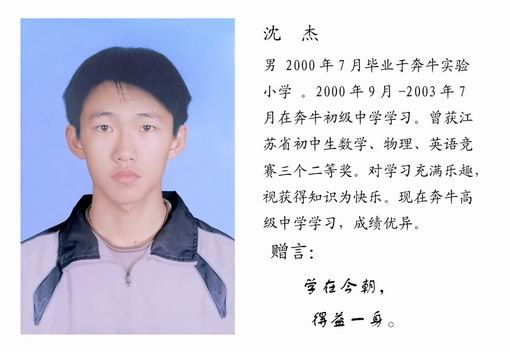 沈 杰
男 2000年7月毕业于奔牛实验
小学 。2000年9月-2003年7
月在奔牛初级中学学习。曾获江
苏省初中生数学、物理、英语竞
赛三个二等奖。对学习充满乐趣,
视获得知识为快乐。现在奔牛高
级中学学习，成绩优异。
赠言：
学在今朝，
得益一身。